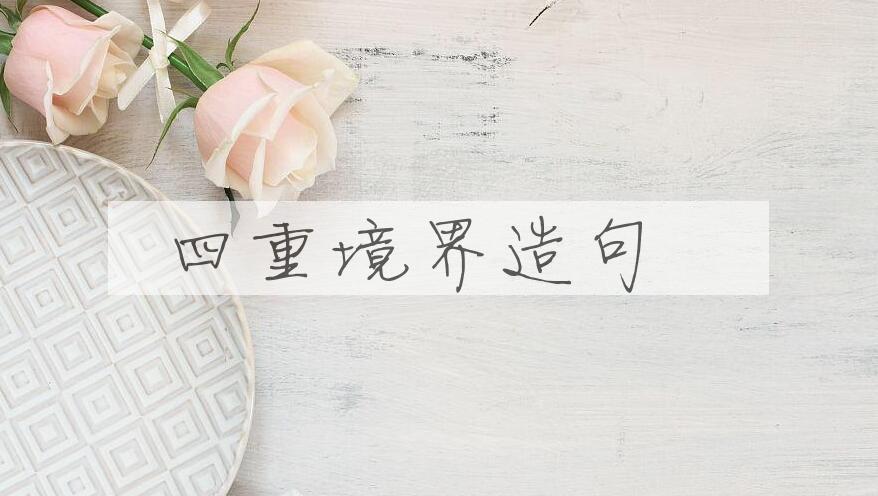 四重境界造句